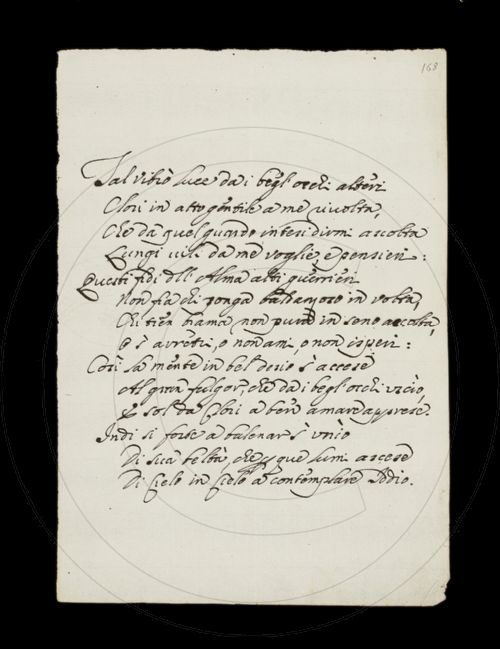 168
Tal vibrò luce da i begl' occhi alteri
Clori in atto gentile a me rivolta,
Che da quel quando intesi dirmi ascolta
Lungi vili da me voglie, e pensieri:
Questi fidi dell' Alma alti guerrieri
Non fia chi ponga baldanzoso in volta,
Chi tien brama non pura in seno accolta,
O s' arretri, o non ami, o non isperi:
Così la mente in bel desio s' accese
Al gran fulgor, che da i begl' occhi uscìo,
E sol da Clori a bene amare apprese.
Indi si forte a balenar s' unìo
Di sua beltà, che que lumi ascese
Di Cielo in Cielo a contemplare Iddio.